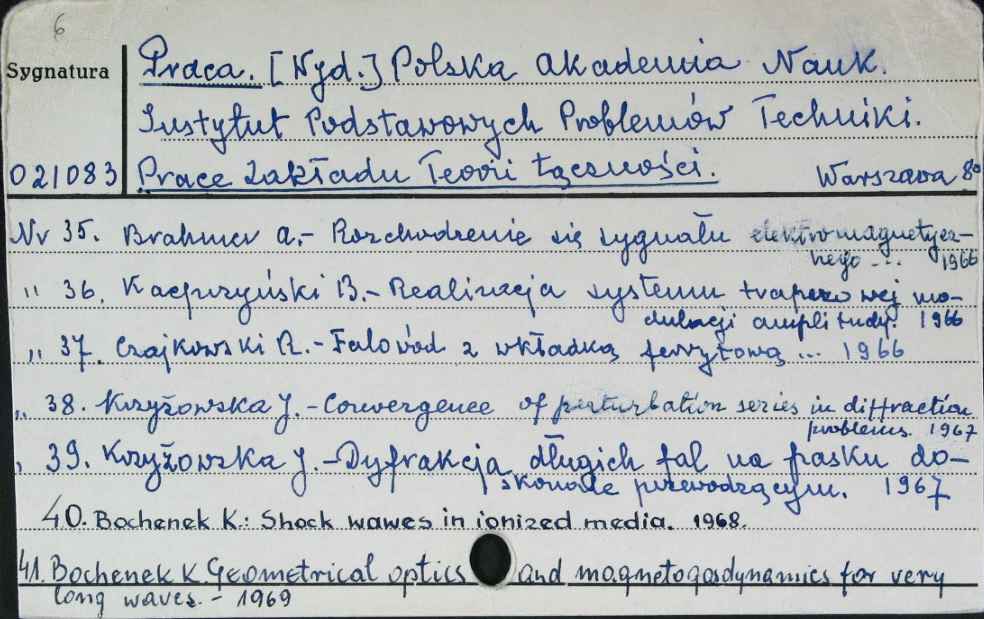 6
Sygnatura
Praca. [Wyd.] Polska Akademia Nauk.
Instytut Podstawowych Problemów Techniki.
021083 Prace Zakładu Teorii Łączności. Warszawa 8º
Nr 35. Brahmer A.- Rozchodzenie się sygnału elektromagnetycz-
nego ... 1966
,, 36. Kacprzyński B.- Realizacja systemu trapezowej mo-
dulacji amplitudy. 1966
,, 37. Czajkowski R.- Falovód z wkładką ferrytową ... 1966
,, 38. Krzyżowska J.- Convergence of perturbation series in diffraction
problems. 1967
,, 39. Krzyżowska J.- Dyfrakcja długich fal na pasku do-
skonale przewodzącym. 1967
40. Bochenek K.: Shock wawes in ionized media. 1968.
41. Bochenek K. Geometrical optics and magnetogasdynamics for very
long waves. - 1969